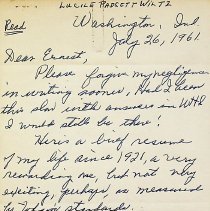 LUCILE PADGETT WILTZ
Read
Washington, Ind.
July 26, 1961
Dear Ernest,
Please forgive my negligence
in writing sooner, Had I been
this slow with answers in WHS
I would still be there!
Here's a brief resume
of my life since 1921, a very
rewarding one, but not very
exciting, perhaps as measured
by today's standards.